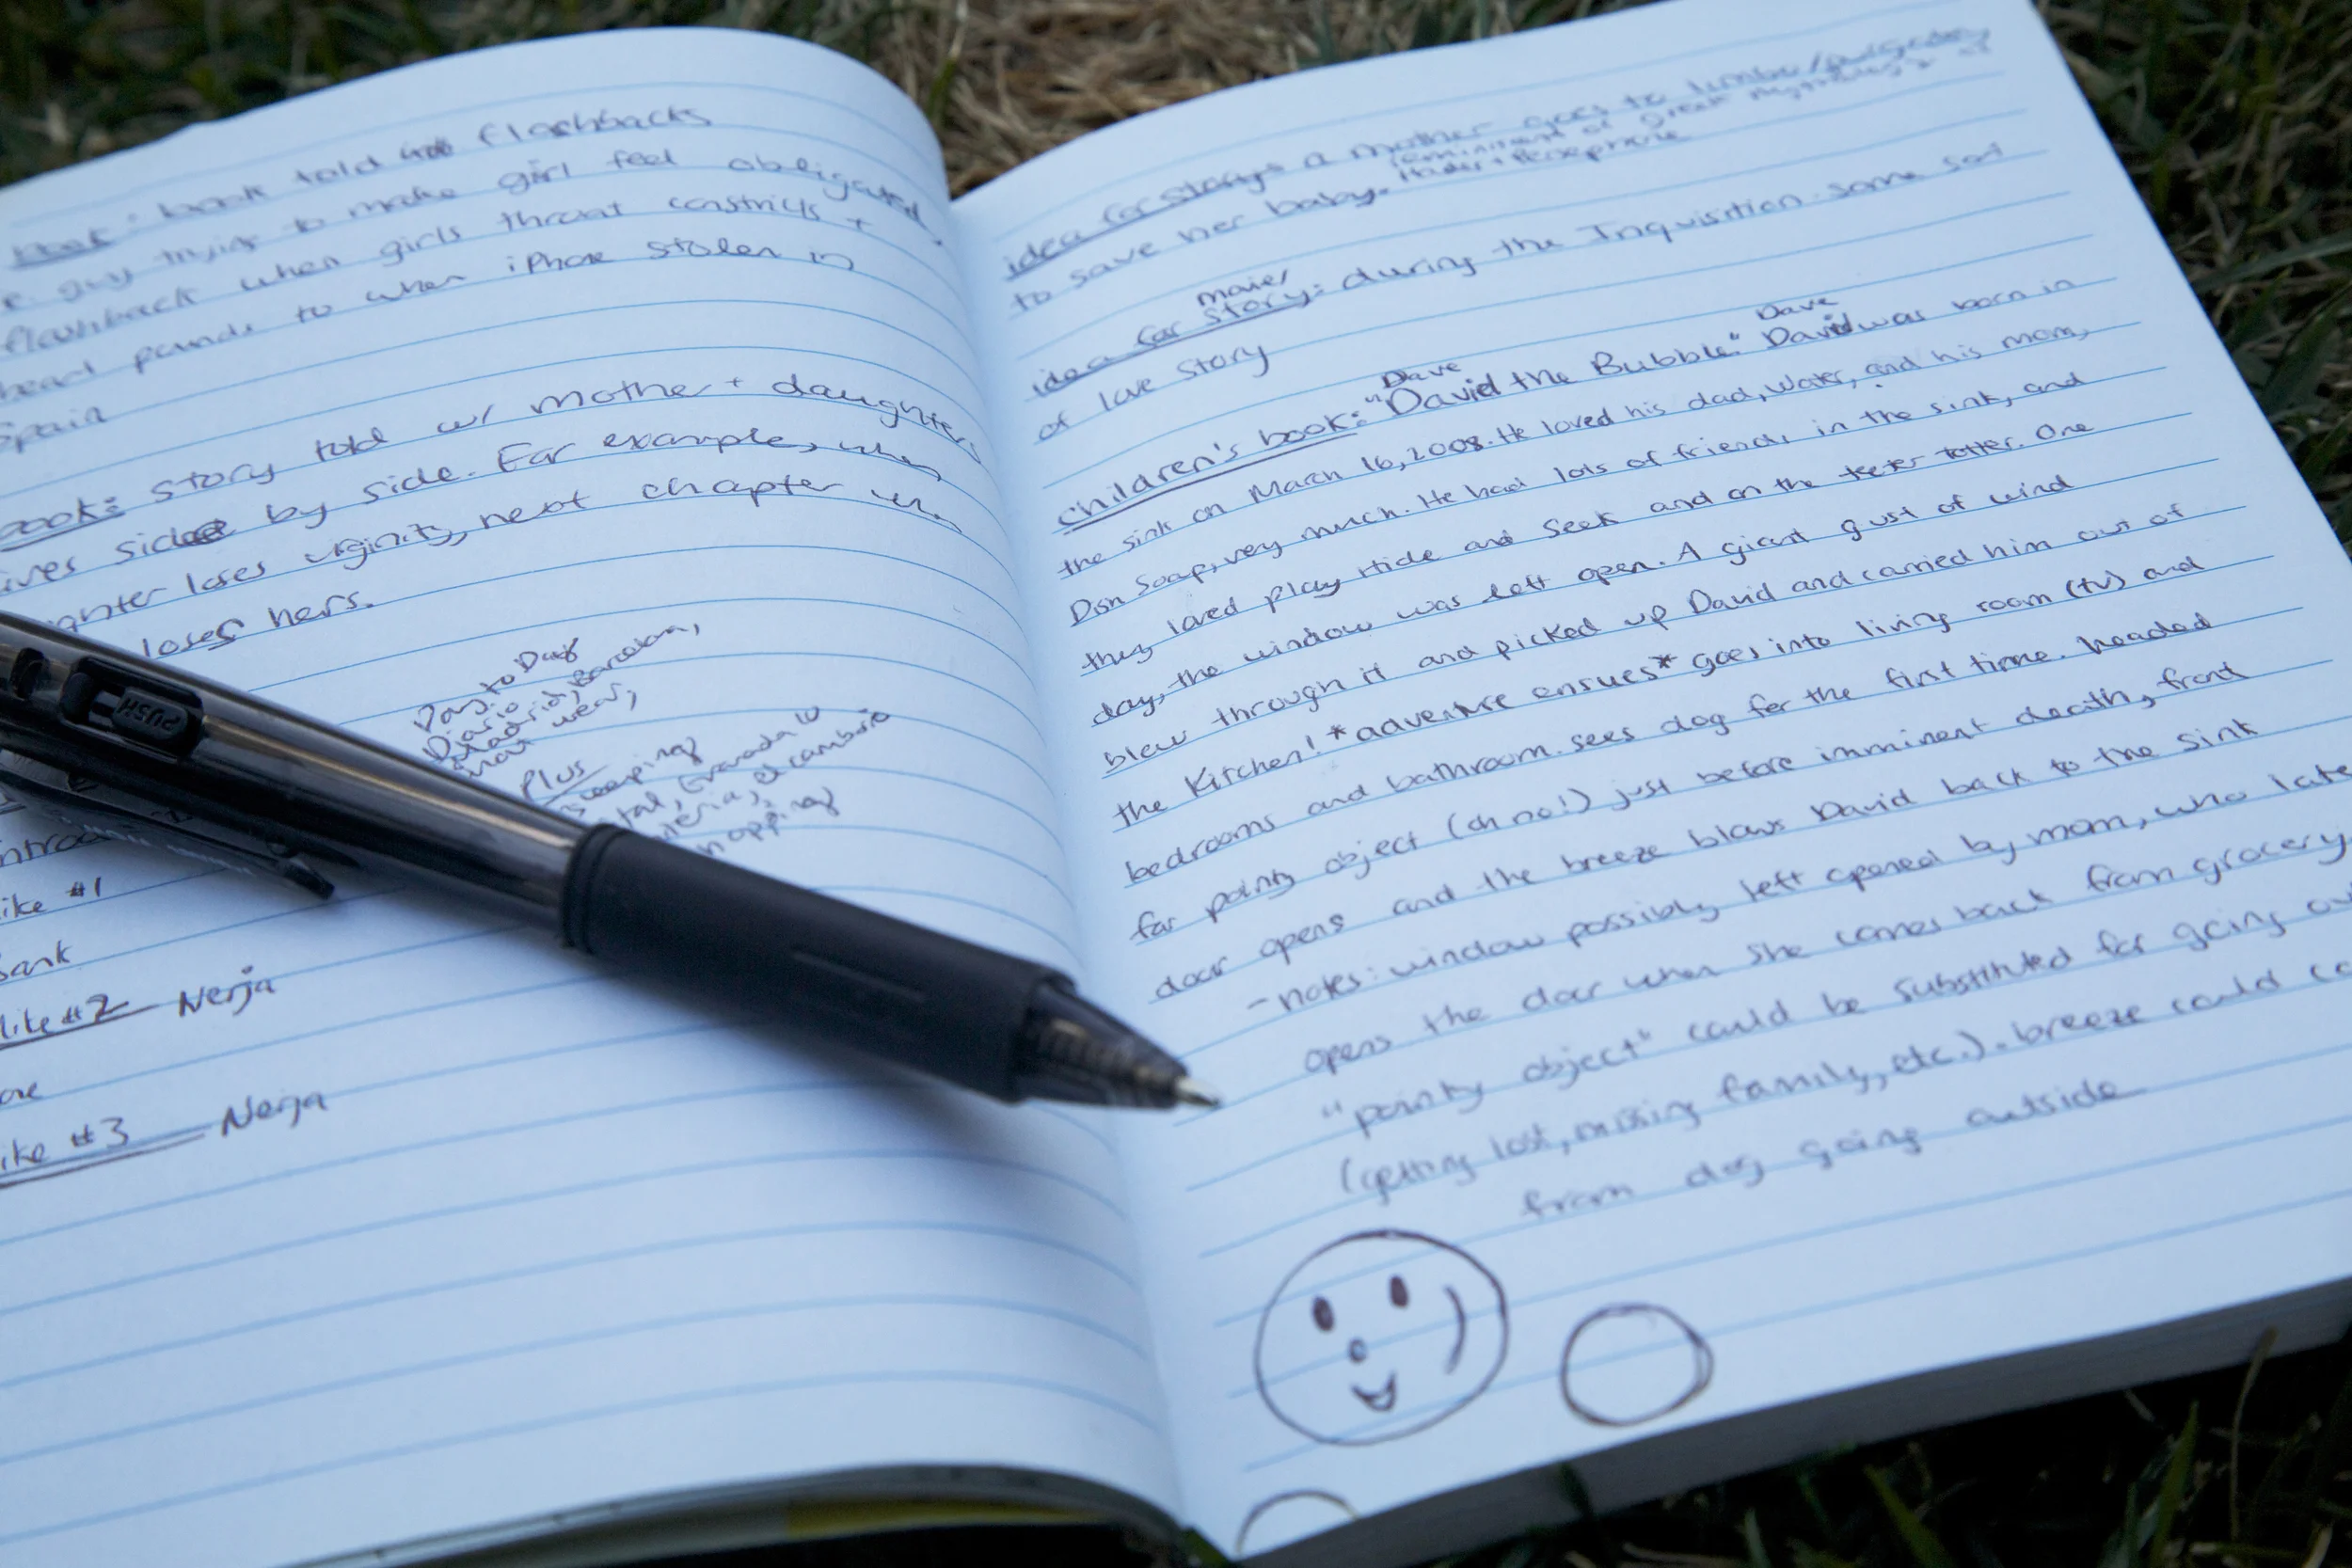 book told flashbacks
guy trying to make girl feel obligated.
flashback when girls throat constricts +
head pounds to when iPhone stolen in
Spain
book: story told w/ mother + daughters
lives side by side. For example, when
loses virginity, next chapter
loses hers.
Day to Day
Diario
Madrid, Barcelona,
wear,
Plus
Sleeping
Granada
el cambario
PUSH
ike #1
bank
#2 Nerja
#3 Nerja
idea for story: a mother goes to limbo/purgatory
to save her baby. reminiscent of greek
Hades + Persephone
movie/
idea for story: during the Inquisition. some sort
of love story
Dave Dave
children's book: "David the Bubble." David was born in
the sink on March 16, 2008. He loved his dad, Water, and his mom,
Dish Soap, very much. He had lots of friends in the sink, and
they loved play Hide and Seek and on the teeter totter. One
day, the window was left open. A giant gust of wind
blew through it and picked up David and carried him out of
the Kitchen! *adventure ensues* goes into living room (tv) and
bedrooms and bathroom. sees dog for the first time. headed
for pointy object (oh no!) just before imminent death, front
door opens and the breeze blows David back to the sink
- notes: window possibly left opened by mom, who
opens the door when she comes back from grocery.
"pointy object" could be substituted for going
(getting lost, missing family, etc.). breeze could
from dog going outside